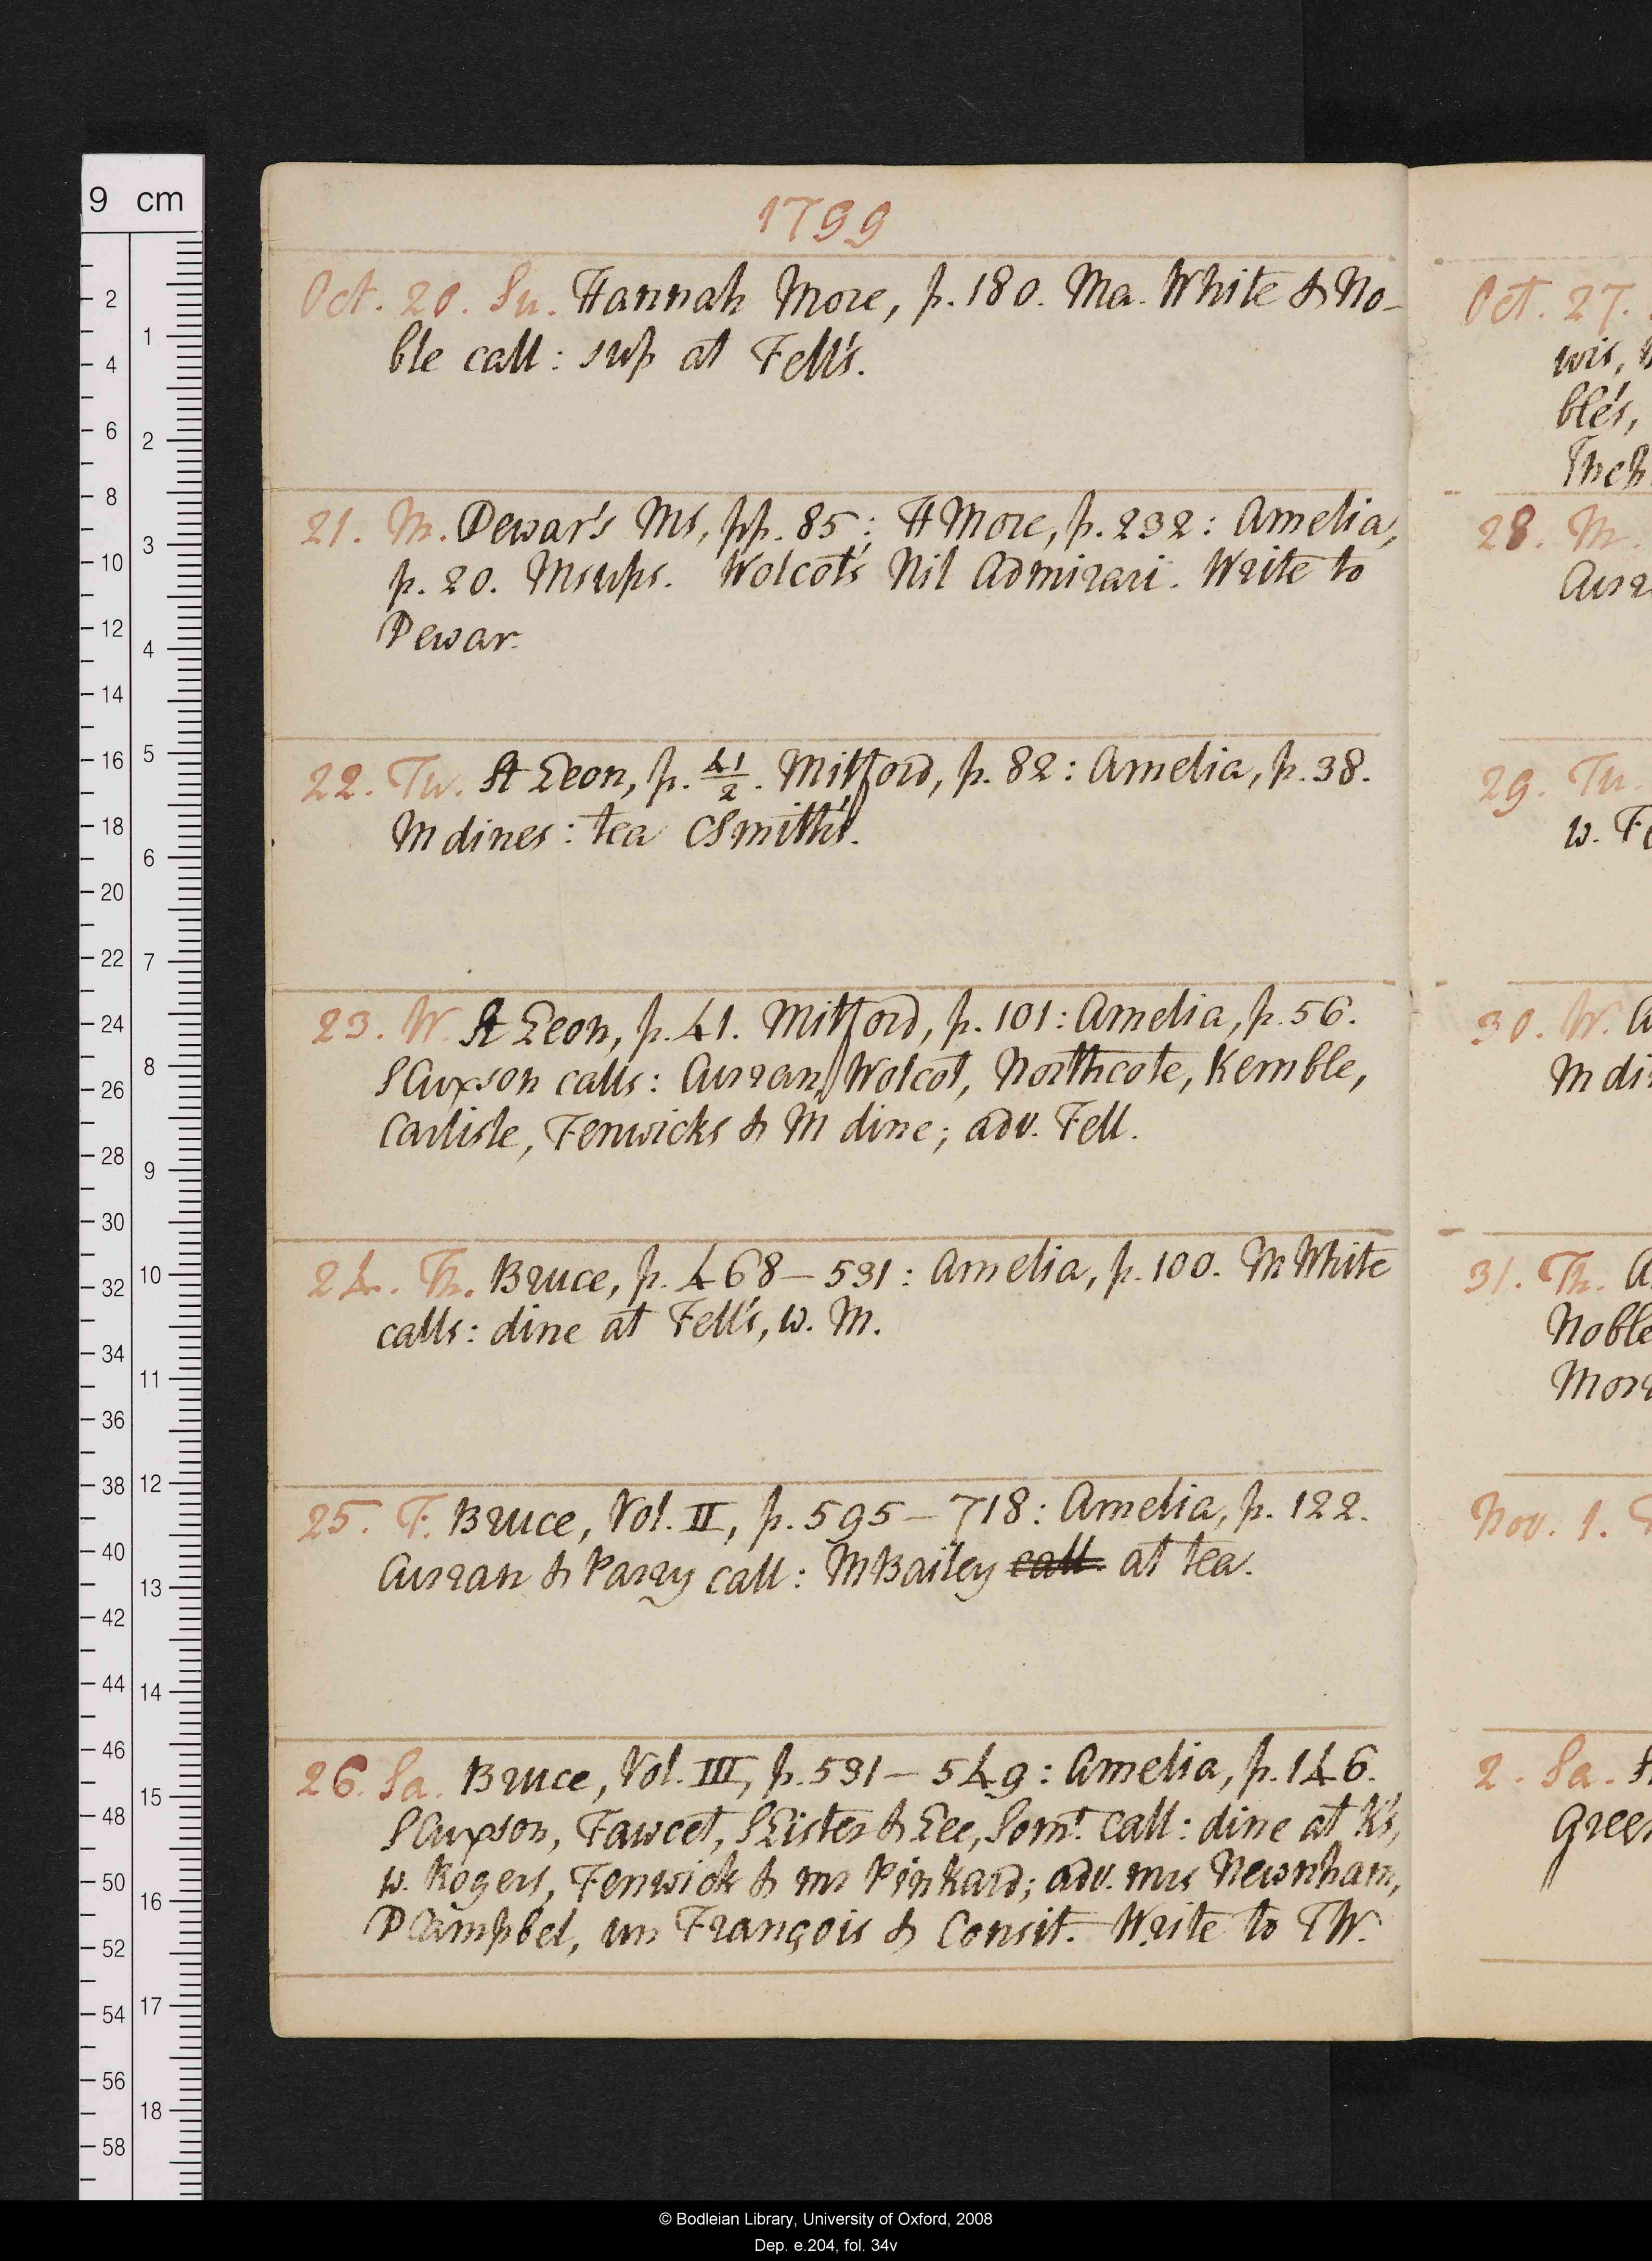 1799
Oct. 20. Su. Hannah More, p. 180. Ma. White & No-
ble call: sup at Fell's.
21. M. Dewar's Ms, pp. 85: HMore, p. 232: Amelia,
p. 20. M sups. Wolcot's Nil Admirari. Write to
Dewar.
22. Tu. St Leon, p. 41/2. Mitford, p. 82: Amelia, p. 38.
M dines: tea CSmith's.
23. W. St Leon, p. 41. Mitford, p. 101: Amelia, p. 56.
Curran, Wolcot, Northcote, Kemble,
Carlisle, Fenwicks & M dine; adv. Fell.
24. Th. Bruce, p. 468–531: Amelia, p. 100. M White
calls: dine at Fell's, w. M.
25. F. Bruce, Vol. II, p. 595–718: Amelia, p. 122.
Curran & Parry call: MBailey call at tea.
26. Sa. Bruce, Vol. III, p. 531–549: Amelia, p. 146.
Fawcet, SLister & Lee, Somt. call: dine at K's,
w. Rogers, Fenwick & mr Pinkard; adv. mrs Newnham,
PCampbel, un François & Consit. Write to TW.
Oct. 27.
wis,
ble's,
28. M.
29. Tu.
w.
30. W.
M
31. Th.
Noble
Nov. 1.
2. Sa.
Green
9 cm
2 4 6 8 10 12 14 16 18 20 22 24 26 28 30 32 34 36 38 40 42 44 46 48 50 52 54 56 58
1 2 3 4 5 6 7 8 9 10 11 12 13 14 15 16 17 18
© Bodleian Library, University of Oxford, 2008
Dep. e.204, fol. 34v